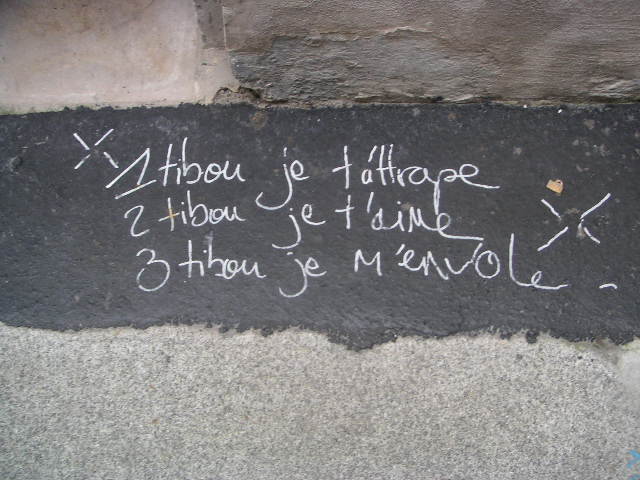 1 tibou je t'attrape
2 tibou je t'aime
3 tibou je m'envole